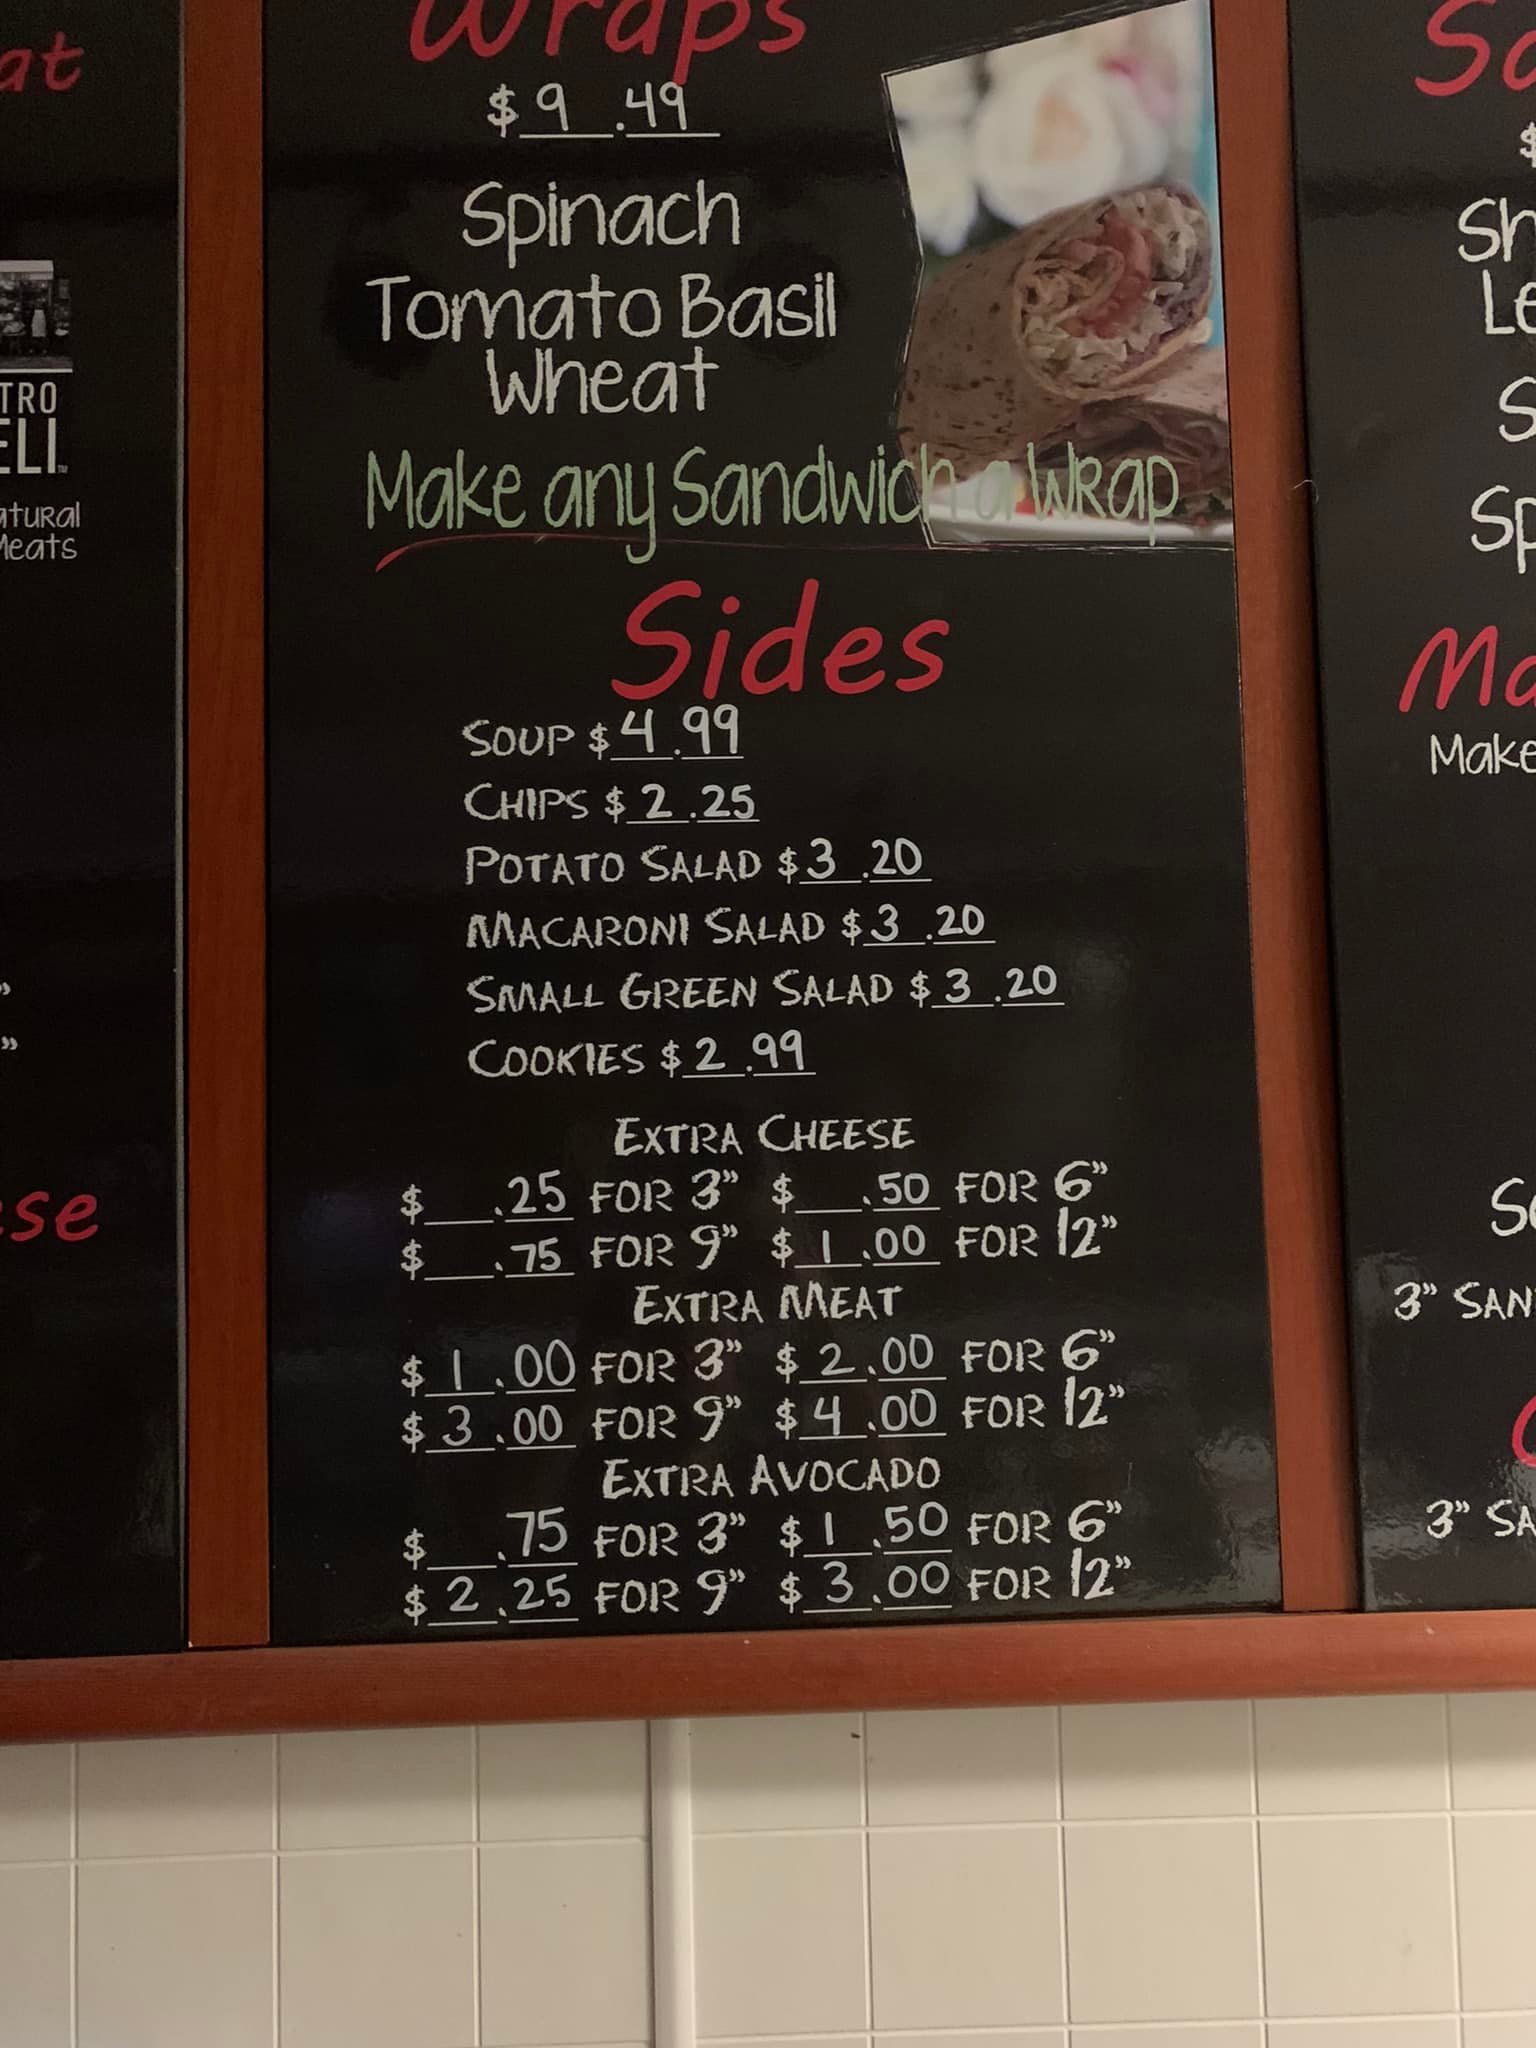 Wraps
$ 9 .49
Spinach
Tomato Basil
Wheat
Make any Sandwich a Wrap
Sides
Soup $ 4.99
Chips $ 2.25
Potato Salad $ 3.20
Macaroni Salad $ 3.20
Small Green Salad $ 3.20
Cookies $ 2.99
Extra Cheese
$ .25 for 3" $ .50 for 6"
$ .75 for 9" $ 1.00 for 12"
Extra Meat
$ 1.00 for 3" $ 2.00 for 6"
$ 3.00 for 9" $ 4.00 for 12"
Extra Avocado
$ .75 for 3" $ 1.50 for 6"
$ 2.25 for 9" $ 3.00 for 12"
Make
3"
3"